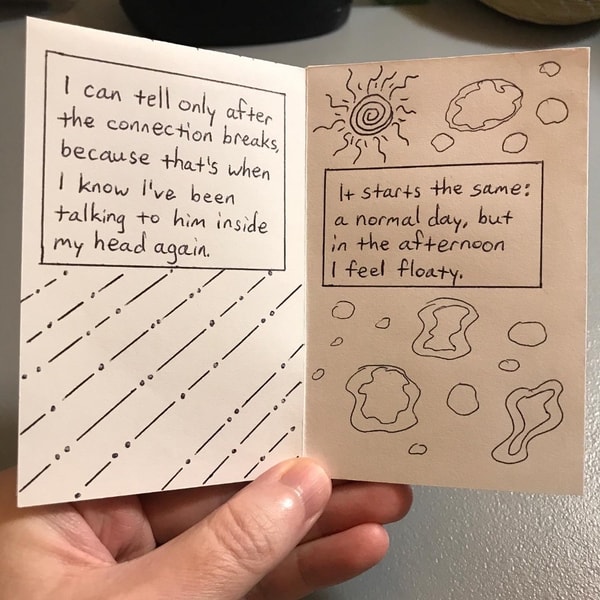 I can tell only after
the connection breaks,
because that's when
I know I've been
talking to him inside
my head again.
It starts the same:
a normal day, but
in the afternoon
I feel floaty.